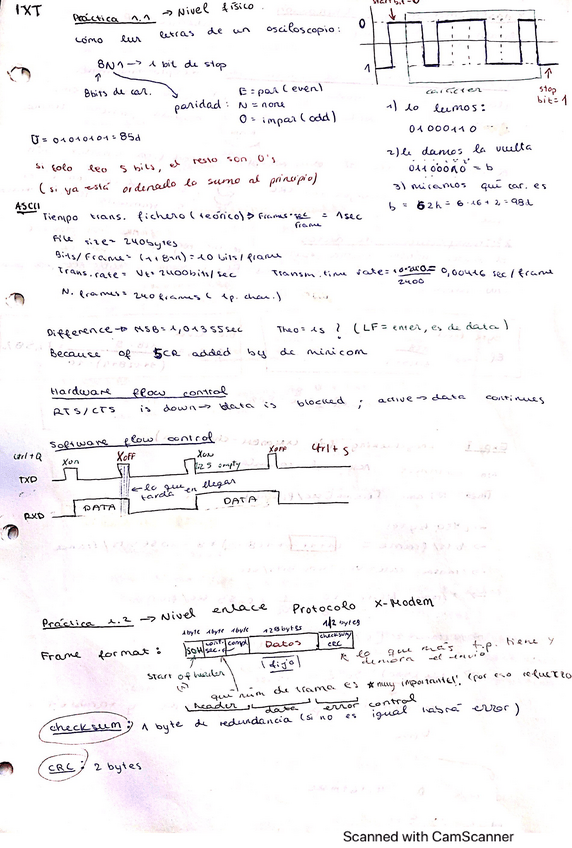 IXT
Práctica 1.1 → Nivel físico.
cómo leer letras de un osciloscopio:
8N1 → 1 bit de stop
8bits de car.
paridad: E = par (even)
N = none
O = impar (odd)
U = 01010101 = 85d
si solo leo 5 bits, el resto son 0's
(si ya está ordenado lo sumo al principio)
start bit = 0
0
1
carácter
stop bit = 1
1) lo leemos:
01000110
2) le damos la vuelta
= b
3) miramos qué car. es
b = 62h = 6·16+2 = 98d
ASCII
Tiempo trans. fichero (teórico) → Frames · sec/frame = 1sec
File size = 240bytes
Bits/Frame = (1+8+1) = 10 bits/frame
Trans. rate = Vt = 2400bits/sec
Transm. time rate = 2400 = 0,00416 sec/frame
N. frames = 240 frames
Difference → MSB = 1,01355sec Theo = 1s ? (LF = enter, es de data)
Because of 5CR added by de minicom
Hardware flow control
RTS/CTS is down → data is blocked ; active → data continues
Software flow control
ctrl+Q Xon Xoff Xon Xoff ctrl+s
empty
TXD
← lo que tarda en llegar
RXD DATA DATA
Práctica 1.2 → Nivel enlace Protocolo X-Modem
1byte 1byte 1byte 128bytes 1/2 bytes
Frame format: SOH Datos checksum CRC
(fijo)
lo que más t.p. tiene y demora el envío
start of header
qué núm de trama es *muy importante! (por eso refuerzo
header data error control
checksum: 1 byte de redundancia (si no es igual habrá error)
CRC: 2 bytes
Scanned with CamScanner